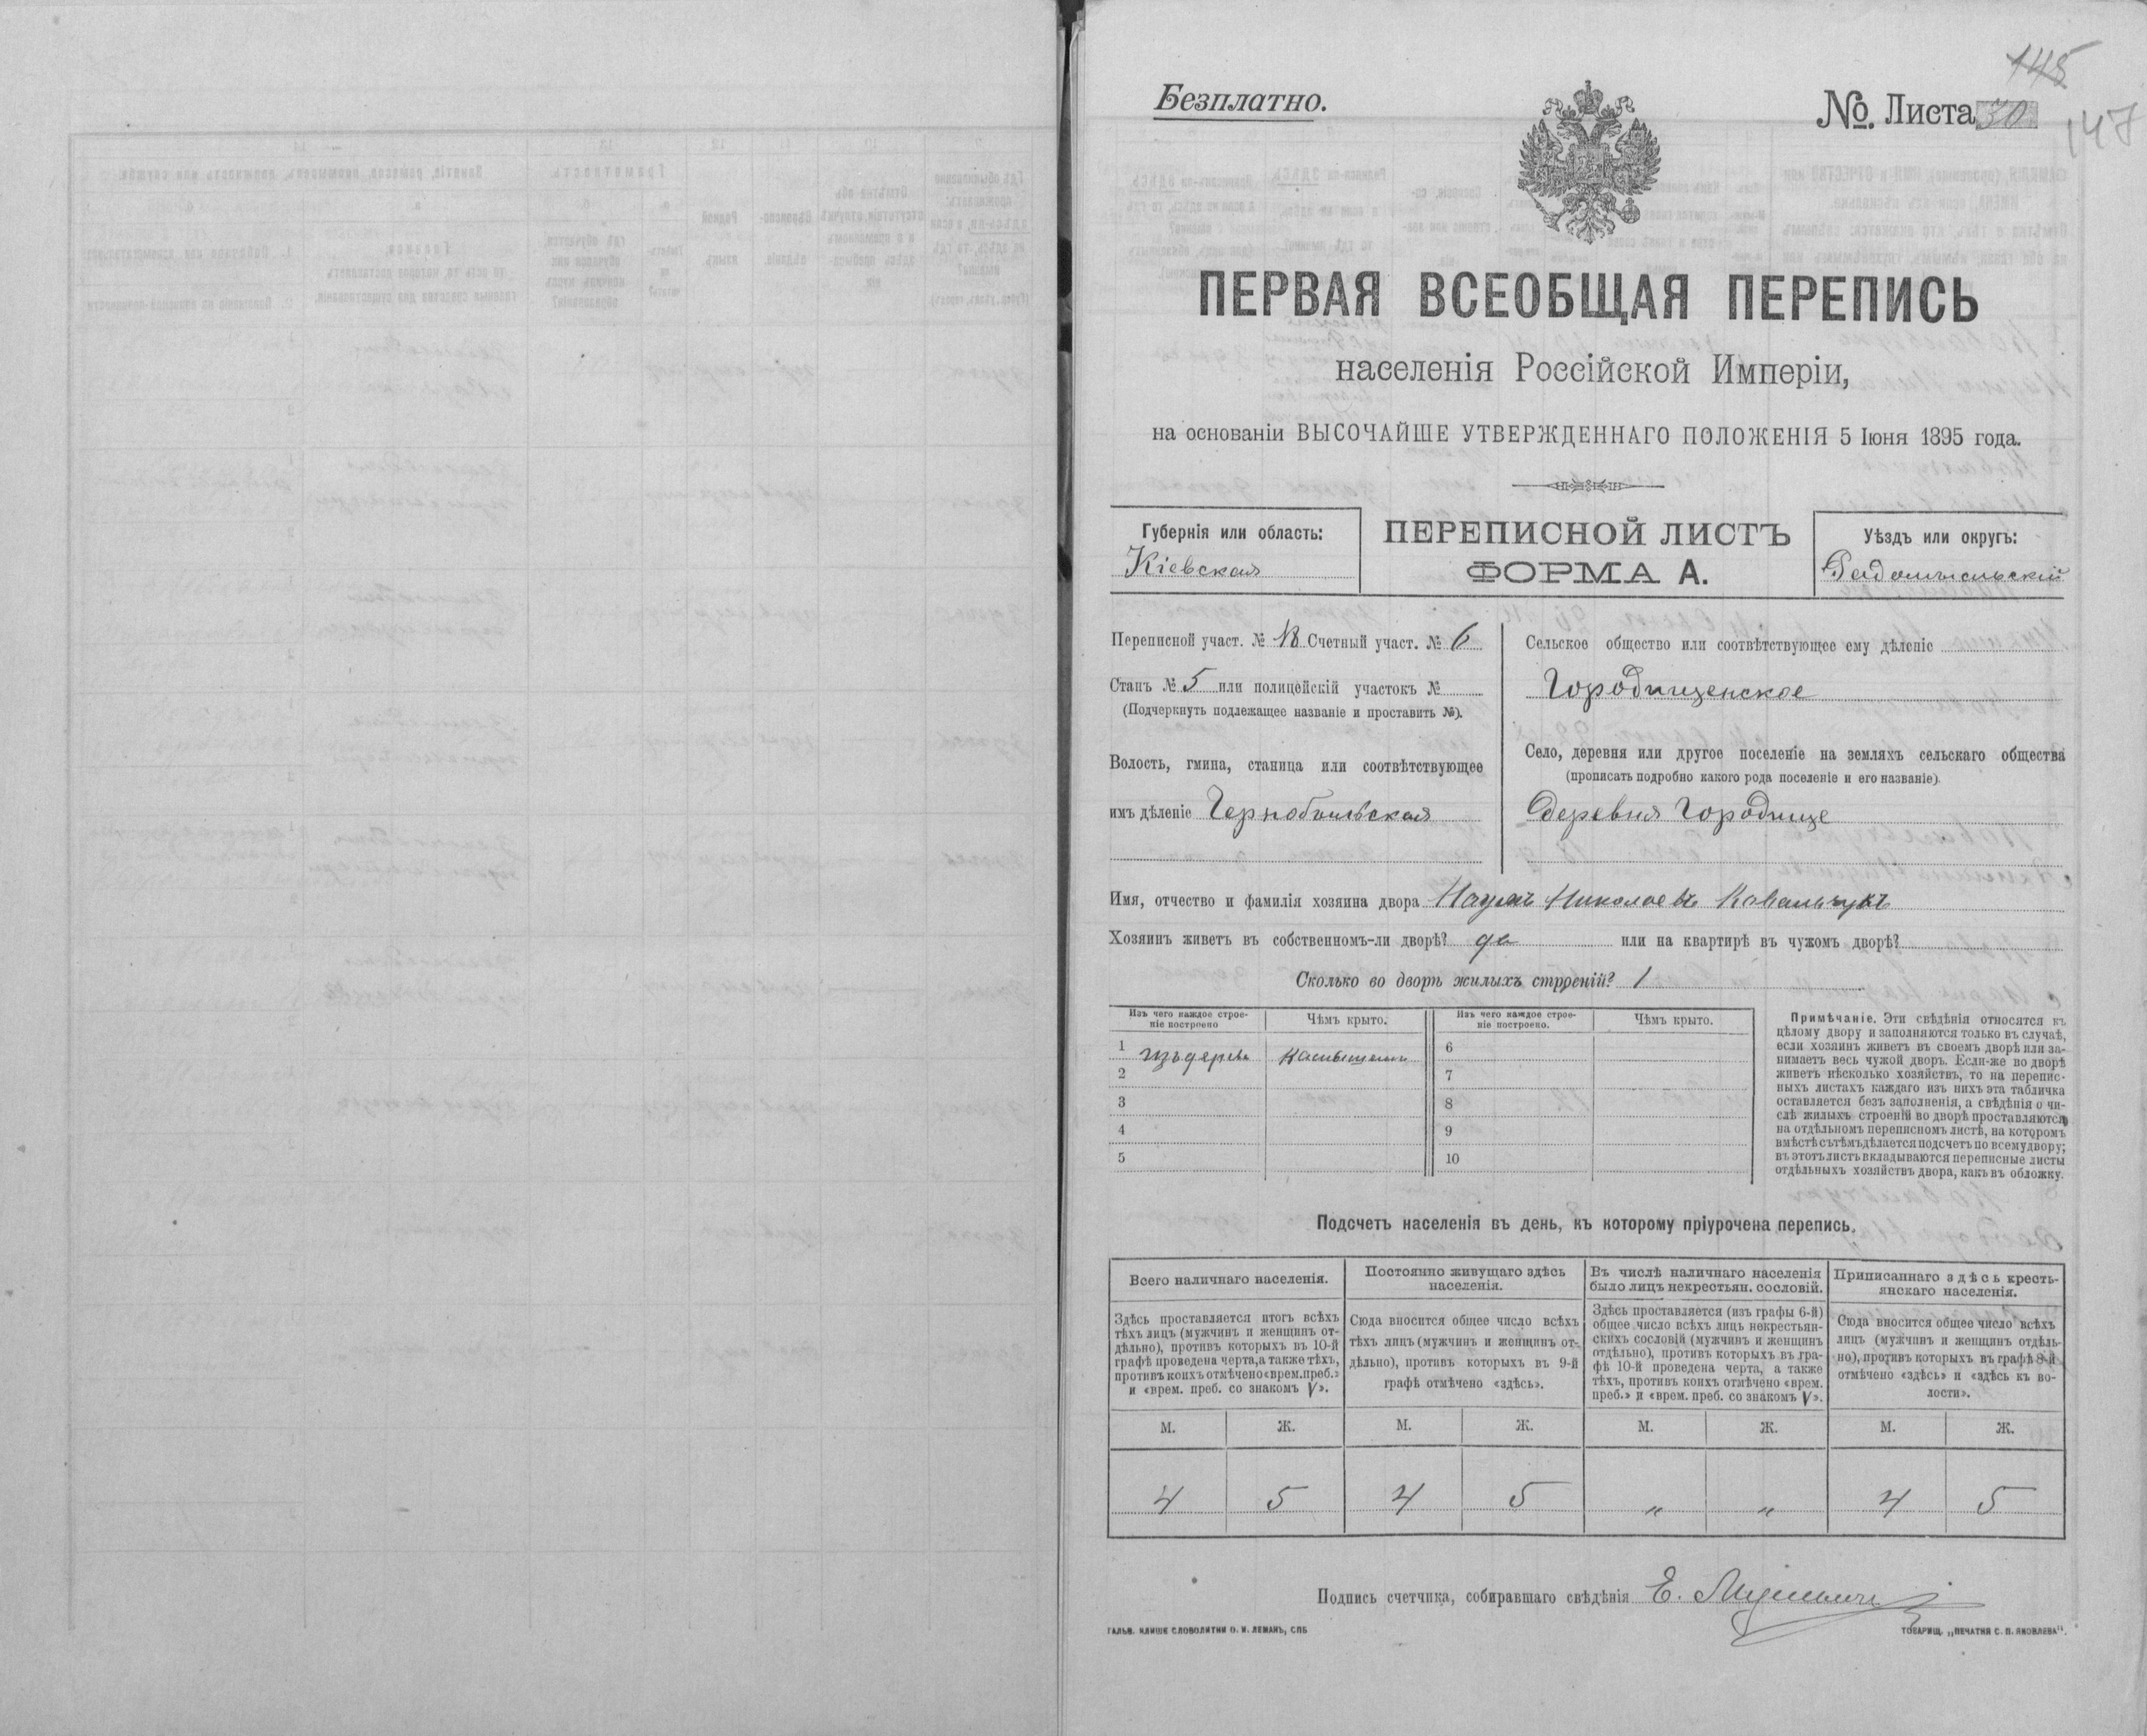 Безплатно.
№ Листа 30
145
147
ПЕРВАЯ ВСЕОБЩАЯ ПЕРЕПИСЬ
населенія Россійской Имперіи,
на основаніи ВЫСОЧАЙШЕ УТВЕРЖДЕННАГО ПОЛОЖЕНІЯ 5 Іюня 1895 года.
Губернія или область:
Кіевская
ПЕРЕПИСНОЙ ЛИСТЪ
ФОРМА А.
Уѣздъ или округъ:
Радомысльскій
Переписной участ. № 18 Счетный участ. № 6
Станъ № 5 или полицейскій участокъ №
(Подчеркнуть подлежащее названіе и проставить №).
Волость, гмина, станица или соотвѣтствующее
имъ дѣленіе Чернобыльская
Сельское общество или соотвѣтствующее ему дѣленіе
Городищенское
Село, деревня или другое поселеніе на земляхъ сельскаго общества
(прописать подробно какого рода поселеніе и его названіе)
Деревня Городище
Имя, отчество и фамилія хозяина двора Наумъ Николаевъ Ковальчукъ
Хозяинъ живетъ въ собственномъ-ли дворѣ? да или на квартирѣ въ чужомъ дворѣ?
Сколько во дворѣ жилыхъ строеній? 1
Изъ чего каждое строе-
ніе построено
Чѣмъ крыто.
Изъ чего каждое строе-
ніе построено.
Чѣмъ крыто.
1 изъ дерева
6
2
7
3
8
4
9
5
10
Примѣчаніе. Эти свѣдѣнія относятся къ
цѣлому двору и заполняются только въ случаѣ,
если хозяинъ живетъ въ своемъ дворѣ или за-
нимаетъ весь чужой дворъ. Если-же во дворѣ
живетъ нѣсколько хозяйствъ, то на перепис-
ныхъ листахъ каждаго изъ нихъ эта табличка
оставляется безъ заполненія, а свѣдѣнія о чи-
слѣ жилыхъ строеній во дворѣ проставляются
на отдѣльномъ переписномъ листѣ, на которомъ
вмѣстѣ съ тѣмъ дѣлается подсчетъ по всему двору;
въ этотъ листъ вкладываются переписные листы
отдѣльныхъ хозяйствъ двора, какъ въ обложку.
Подсчетъ населенія въ день, къ которому пріурочена перепись.
Всего наличнаго населенія.
Постоянно живущаго здѣсь
населенія.
Въ числѣ наличнаго населенія
было лицъ некрестьян. сословій.
Приписаннаго здѣсь кресть-
янскаго населенія.
Здѣсь проставляется итогъ всѣхъ
тѣхъ лицъ (мужчинъ и женщинъ от-
дѣльно), противъ которыхъ въ 10-й
графѣ проведена черта, а также тѣхъ,
противъ коихъ отмѣчено «врем. преб.»
и «врем. преб. со знакомъ V».
Сюда вносится общее число всѣхъ
тѣхъ лицъ (мужчинъ и женщинъ от-
дѣльно), противъ которыхъ въ 9-й
графѣ отмѣчено «здѣсь».
Здѣсь проставляется (изъ графы 6-й)
общее число всѣхъ лицъ некрестьян-
скихъ сословій (мужчинъ и женщинъ
отдѣльно), противъ которыхъ въ гра-
фѣ 10-й проведена черта, а также
тѣхъ, противъ коихъ отмѣчено «врем.
преб.» и «врем. преб. со знакомъ V».
Сюда вносится общее число всѣхъ
лицъ (мужчинъ и женщинъ отдѣль-
но), противъ которыхъ въ графѣ 8-й
отмѣчено «здѣсь» и «здѣсь къ во-
лости».
М. Ж. М. Ж. М. Ж. М. Ж.
4 5 4 5 „ „ 4 5
Подпись счетчика, собиравшаго свѣдѣнія Е.
ГАЛЬВ. КЛИШЕ СЛОВОЛИТНИ О. И. ЛЕМАНЪ, СПБ
ТОВАРИЩ. „ПЕЧАТНЯ С. П. ЯКОВЛЕВА".